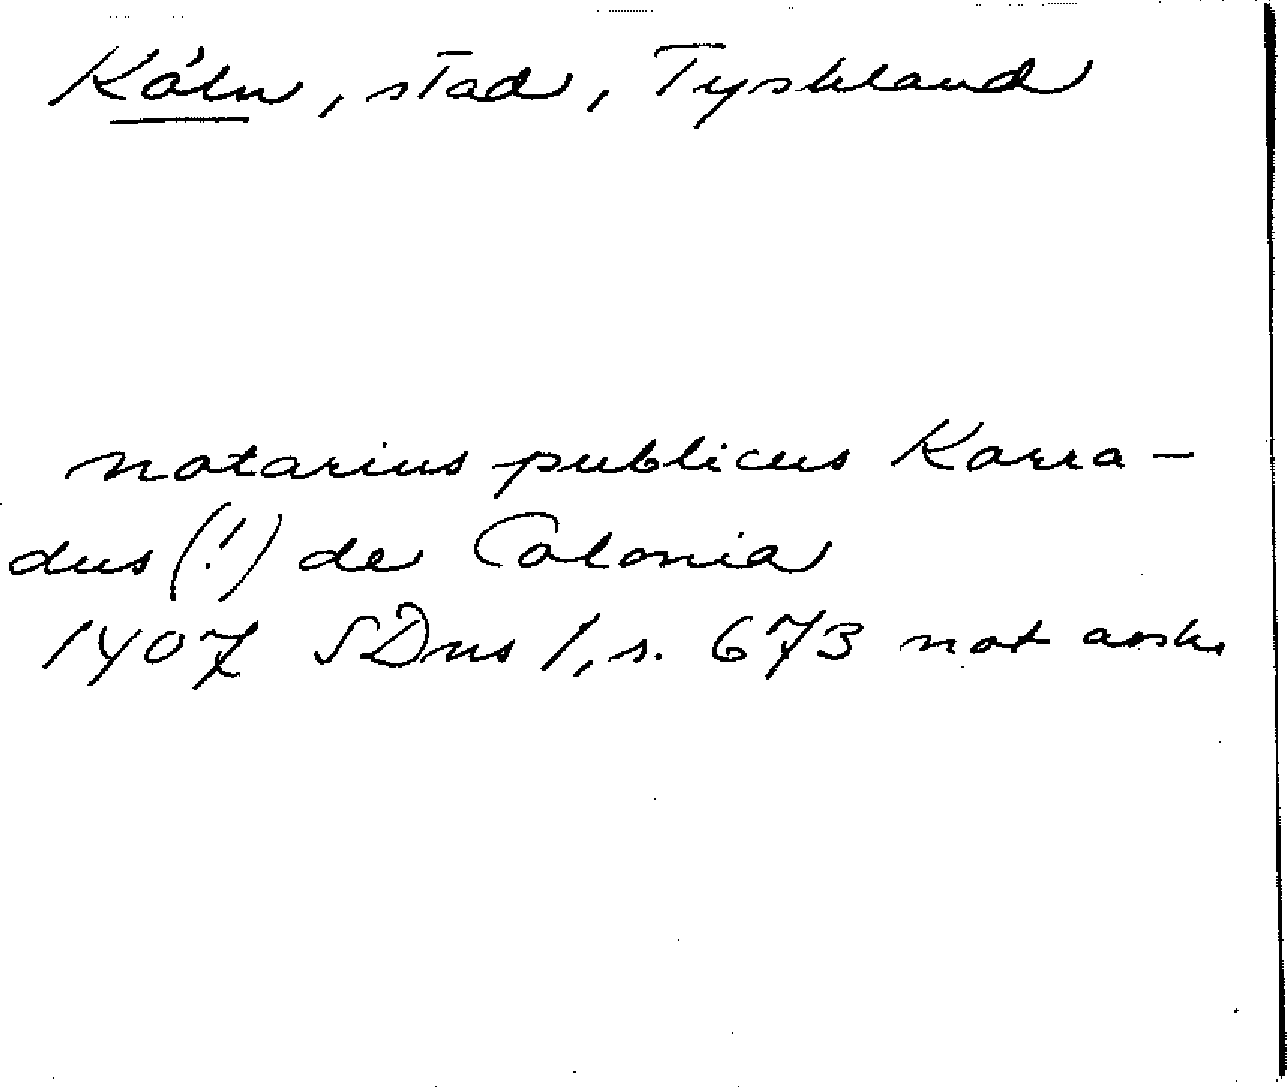 Köln, stad, Tyskland
notarius publicus Korra-
dus (!) de Colonia
1407 SDns 1, s. 673 not avskr